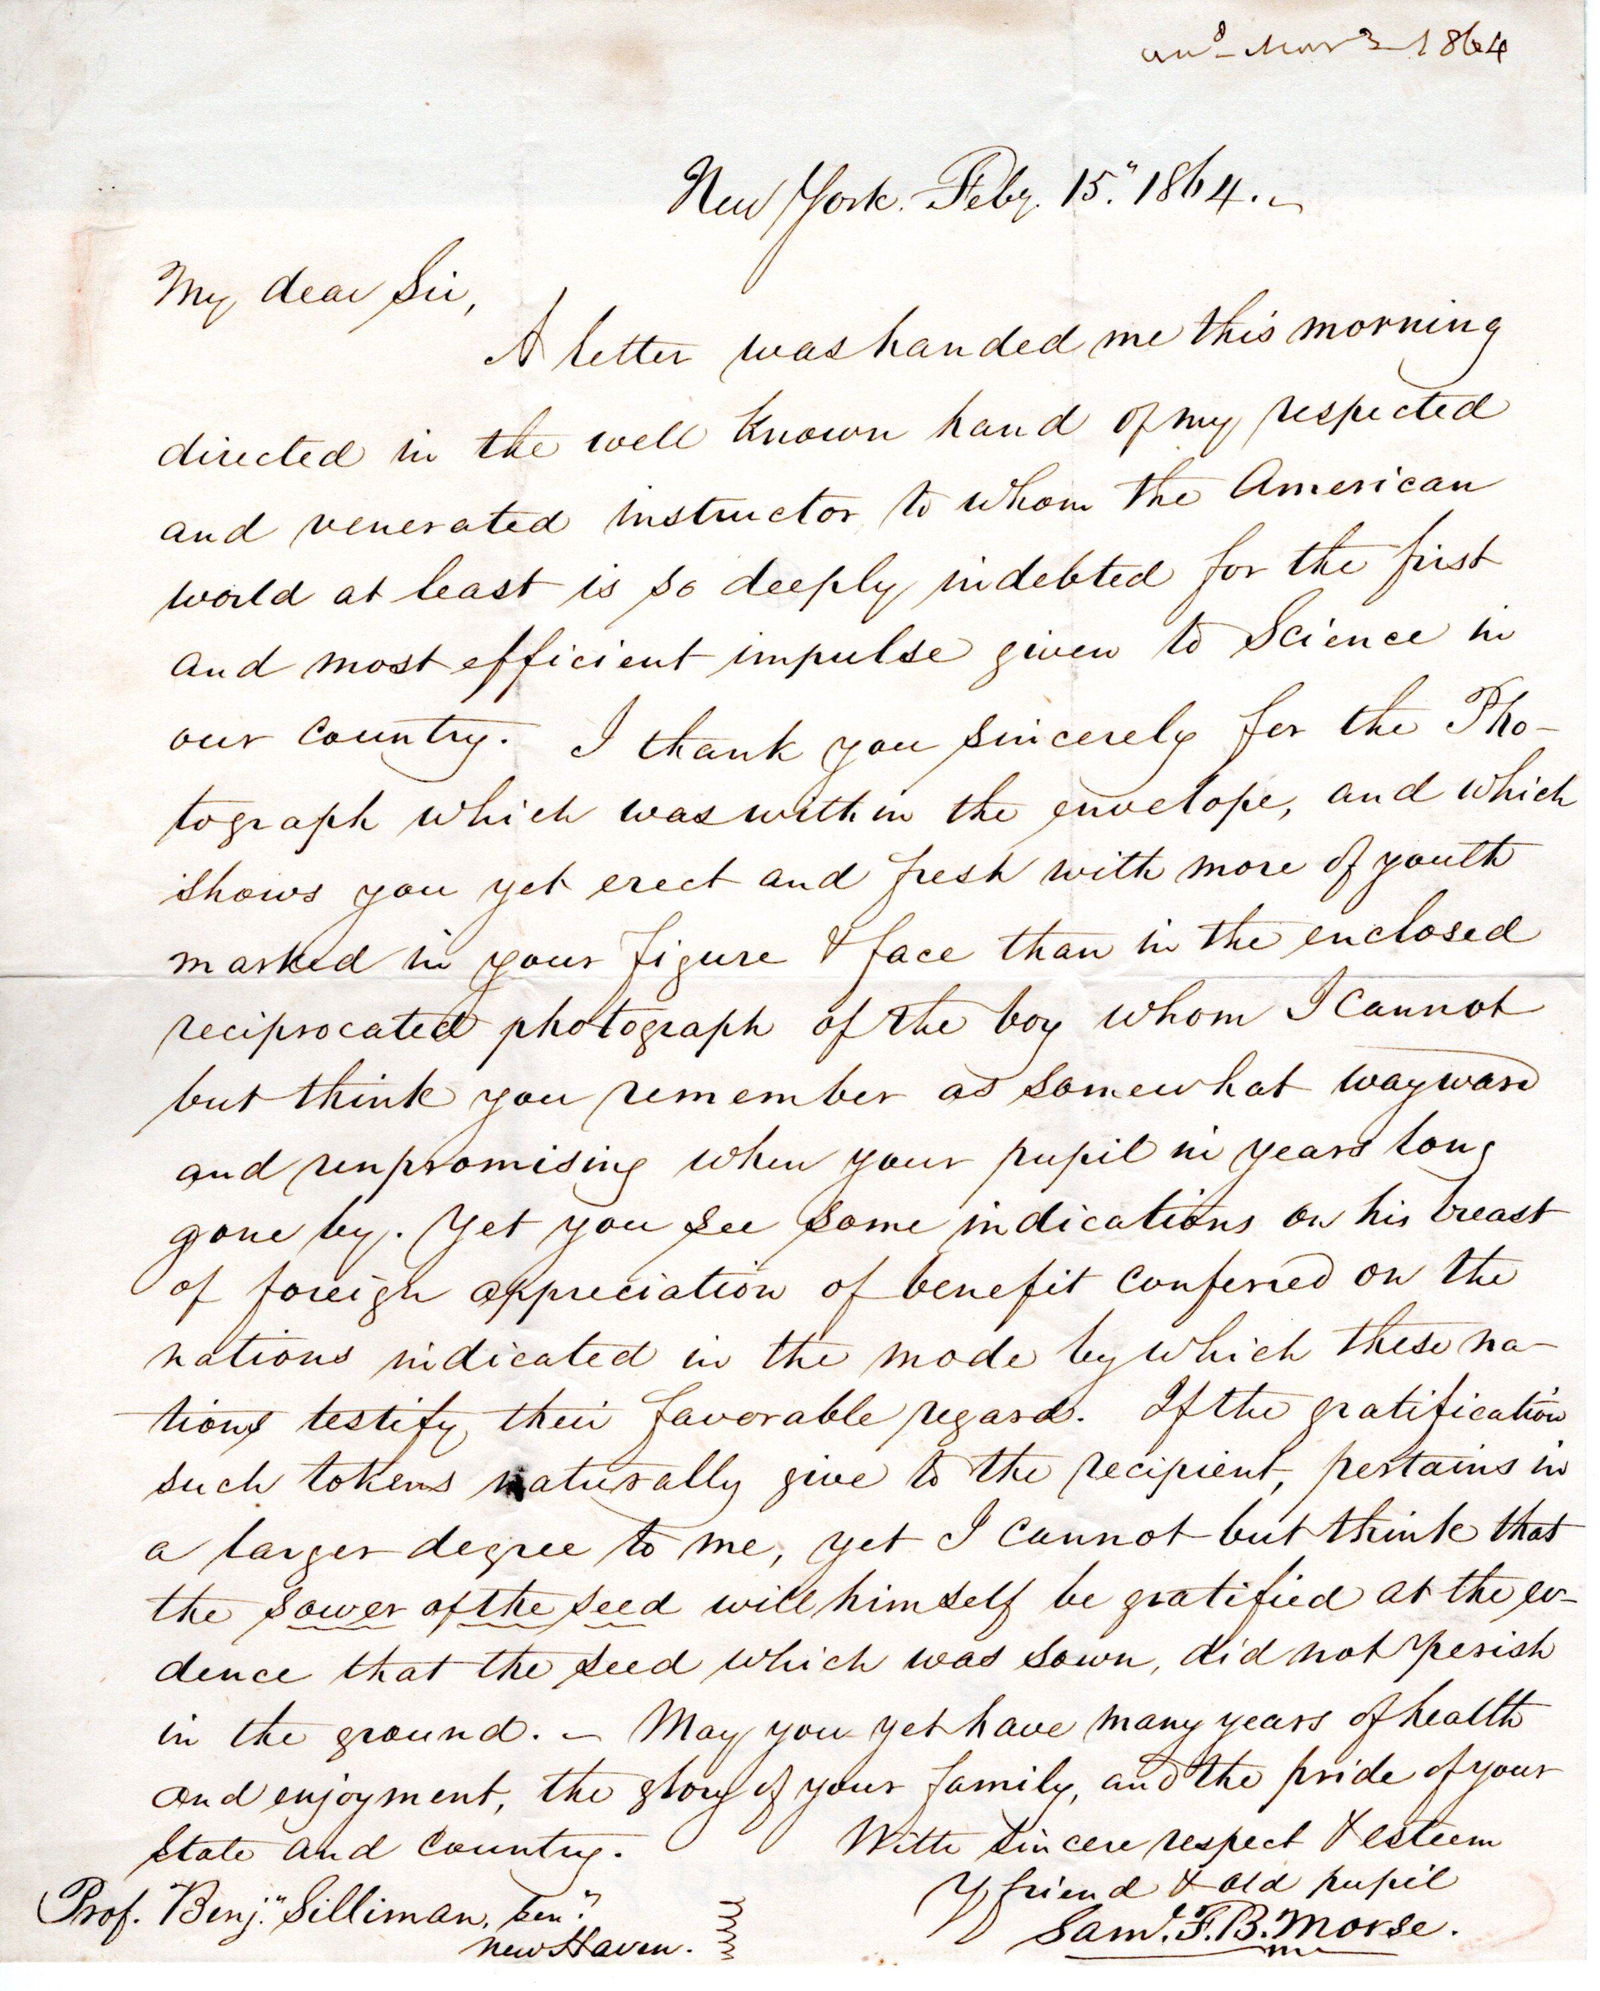 ansd Mar 3 1864
New York. Feby. 15." 1864. _
My dear Sir,
A letter was handed me this morning
directed in the well known hand of my respected
and venerated instructor to whom the American
world at least is so deeply indebted for the first
and most efficient impulse given to Science in
our country. I thank you sincerely for the Pho-
tograph which was within the envelope, and which
shows you yet erect and fresh with more of youth
marked in your figure & face than in the enclosed
reciprocated photograph of the boy whom I cannot
but think you remember as somewhat wayward
and unpromising when your pupil in years long
gone by. Yet you see some indications on his breast
of foreign appreciation of benefit conferred on the
nations indicated in the mode by which these na-
tions testify their favorable regard. If the gratification
such tokens naturally give to the recipient, pertains in
a larger degree to me, yet I cannot but think that
the sower of the seed will himself be gratified at the ev-
dence that the seed which was sown, did not perish
in the ground. — May you yet have many years of health
and enjoyment, the glory of your family, and the pride of your
State and Country.
With sincere respect & esteem
Yr friend & old pupil
Saml. F. B. Morse.
Prof. Benj." Silliman, Sen."
New Haven.